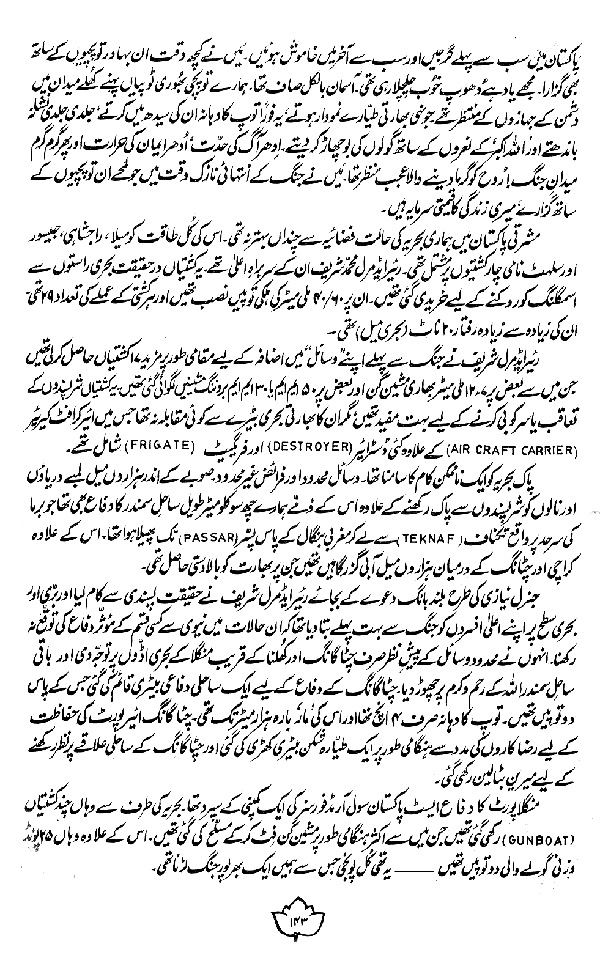 پاکستان میں سب سے پہلے گرجیں اور سب سے آخر میں خاموش ہوئیں۔ میں نے کچھ وقت ان بہادر توپچیوں کے ساتھ
بھی گزارا۔ مجھے یاد ہے دھوپ خوب چلچلا رہی تھی۔ آسمان بالکل صاف تھا۔ ہمارے توپچی بھوری ٹوپیاں پہنے کھلے میدان میں
دشمن کے جہازوں کے منتظر تھے جونہی بھارتی طیارے نمودار ہوتے یہ فوراً توپ کا دہانہ ان کی سیدھ میں کرتے، جلدی جلدی نشانہ
باندھتے اور اللہ اکبر کے نعروں کے ساتھ گولوں کی بوچھاڑ کر دیتے۔ ادھر آگ کی حدّت، اُدھر ایمان کی حرارت اور پھر گرم گرم
میدانِ جنگ! رُوح کو گرما دینے والا عجب منظر تھا، میں نے جنگ کے انتہائی نازک وقت میں جو لمحے ان توپچیوں کے
ساتھ گزارے میری زندگی کا قیمتی سرمایہ ہیں۔
مشرقی پاکستان میں ہماری بحریہ کی حالت فضائیہ سے چنداں بہتر نہ تھی۔ اس کی کُل طاقت کومیلا، راجشاہی، جیسور
اور سلہٹ نامی چار کشتیوں پر مشتمل تھی۔ ریئر ایڈمرل محمد شریف ان کے سربراہِ اعلیٰ تھے یہ کشتیاں درحقیقت بحری راستوں سے
اسمگلنگ کو روکنے کے لیے خریدی گئی تھیں۔ ان پر ۴۰/۶۰ ملی میٹر کی ہلکی توپیں نصب تھیں اور ہر کشتی کے عملے کی تعداد ۲۹ تھی
ان کی زیادہ سے زیادہ رفتار ۲۰ ناٹ (بحری میل) تھی۔
ریئر ایڈمرل شریف نے جنگ سے پہلے اپنے "وسائل" میں اضافہ کے لیے مقامی طور پر مزید ۱۷ کشتیاں حاصل کر لی تھیں
جن میں سے بعض پر ۱۲.۷ ملی میٹر بھاری مشین گن اور بعض پر ۵۰ ایم ایم یا ۳۰ ایم ایم براؤننگ مشینیں لگوائی گئی تھیں۔ یہ کشتیاں شرپسندوں کے
تعاقب یا سرکوبی کرنے کے لیے بہت مفید تھیں مگر ان کا بھارتی بحری بیڑے سے کوئی مقابلہ نہ تھا جس میں ائیر کرافٹ کیریئر
(AIR CRAFT CARRIER) کے علاوہ کئی ڈسٹرائیر (DESTROYER) اور فریگیٹ (FRIGATE) شامل تھے۔
پاک بحریہ کو ایک ناممکن کام کا سامنا تھا۔ وسائل محدود اور فرائض غیر محدود۔ صوبے کے اندر ہزاروں میل لمبے دریاؤں
اور نالوں کو شرپسندوں سے پاک رکھنے کے علاوہ اس کے ذمے ہمارے چھ سو کلومیٹر طویل ساحلِ سمندر کا دفاع بھی تھا جو برما
کی سرحد پر واقع تیکناف (TEKNAF) سے لے کر مغربی بنگال کے پاس پسّر (PASSAR) تک پھیلا ہوا تھا۔ اس کے علاوہ
کراچی اور چٹاگانگ کے درمیان ہزاروں میل آبی گزرگاہیں تھیں جن پر بھارت کو بالادستی حاصل تھی۔
جنرل نیازی کی طرح بلند بانگ دعوے کے بجائے ریئر ایڈمرل شریف نے حقیقت پسندی سے کام لیا اور برّی اور
بحری سطح پر اپنے اعلیٰ افسروں کو جنگ سے بہت پہلے بتا دیا تھا کہ ان حالات میں نیوی سے کسی قسم کے مؤثر دفاع کی توقع نہ
رکھنا۔ انہوں نے محدود وسائل کے پیشِ نظر صرف چٹاگانگ اور کھلنا کے قریب منگلا کے بحری اڈوں پر توجہ دی اور باقی
ساحلِ سمندر اللہ کے رحم و کرم پر چھوڑ دیا۔ چٹاگانگ کے دفاع کے لیے ایک ساحلی دفاعی بیٹری قائم کی گئی جس کے پاس
دو توپیں تھیں۔ توپ کا دہانہ صرف ۴ انچ تھا اور اس کی مار بارہ ہزار میٹر تک تھی۔ چٹاگانگ ائیرپورٹ کی حفاظت
کے لیے رضاکاروں کی مدد سے ہنگامی طور پر ایک طیّارہ شکن بیٹری کھڑی کی گئی اور چٹاگانگ کے ساحلی علاقے پر نظر رکھنے
کے لیے میرین بٹالین رکھی گئی۔
منگلا پورٹ کا دفاع ایسٹ پاکستان سول آرمڈ فورسز کی ایک کمپنی کے سپرد تھا۔ بحریہ کی طرف سے وہاں چند کشتیاں
(GUNBOAT) رکھی گئی تھیں جن میں سے اکثر ہنگامی طور پر مشین گن فٹ کر کے مسلح کی گئی تھیں۔ اس کے علاوہ وہاں ۲۵ پونڈ
وزنی گولے والی دو توپیں تھیں ——— یہ تھی کُل پونجی جس سے ہمیں ایک بھرپور جنگ لڑنا تھی۔
۱۴۳